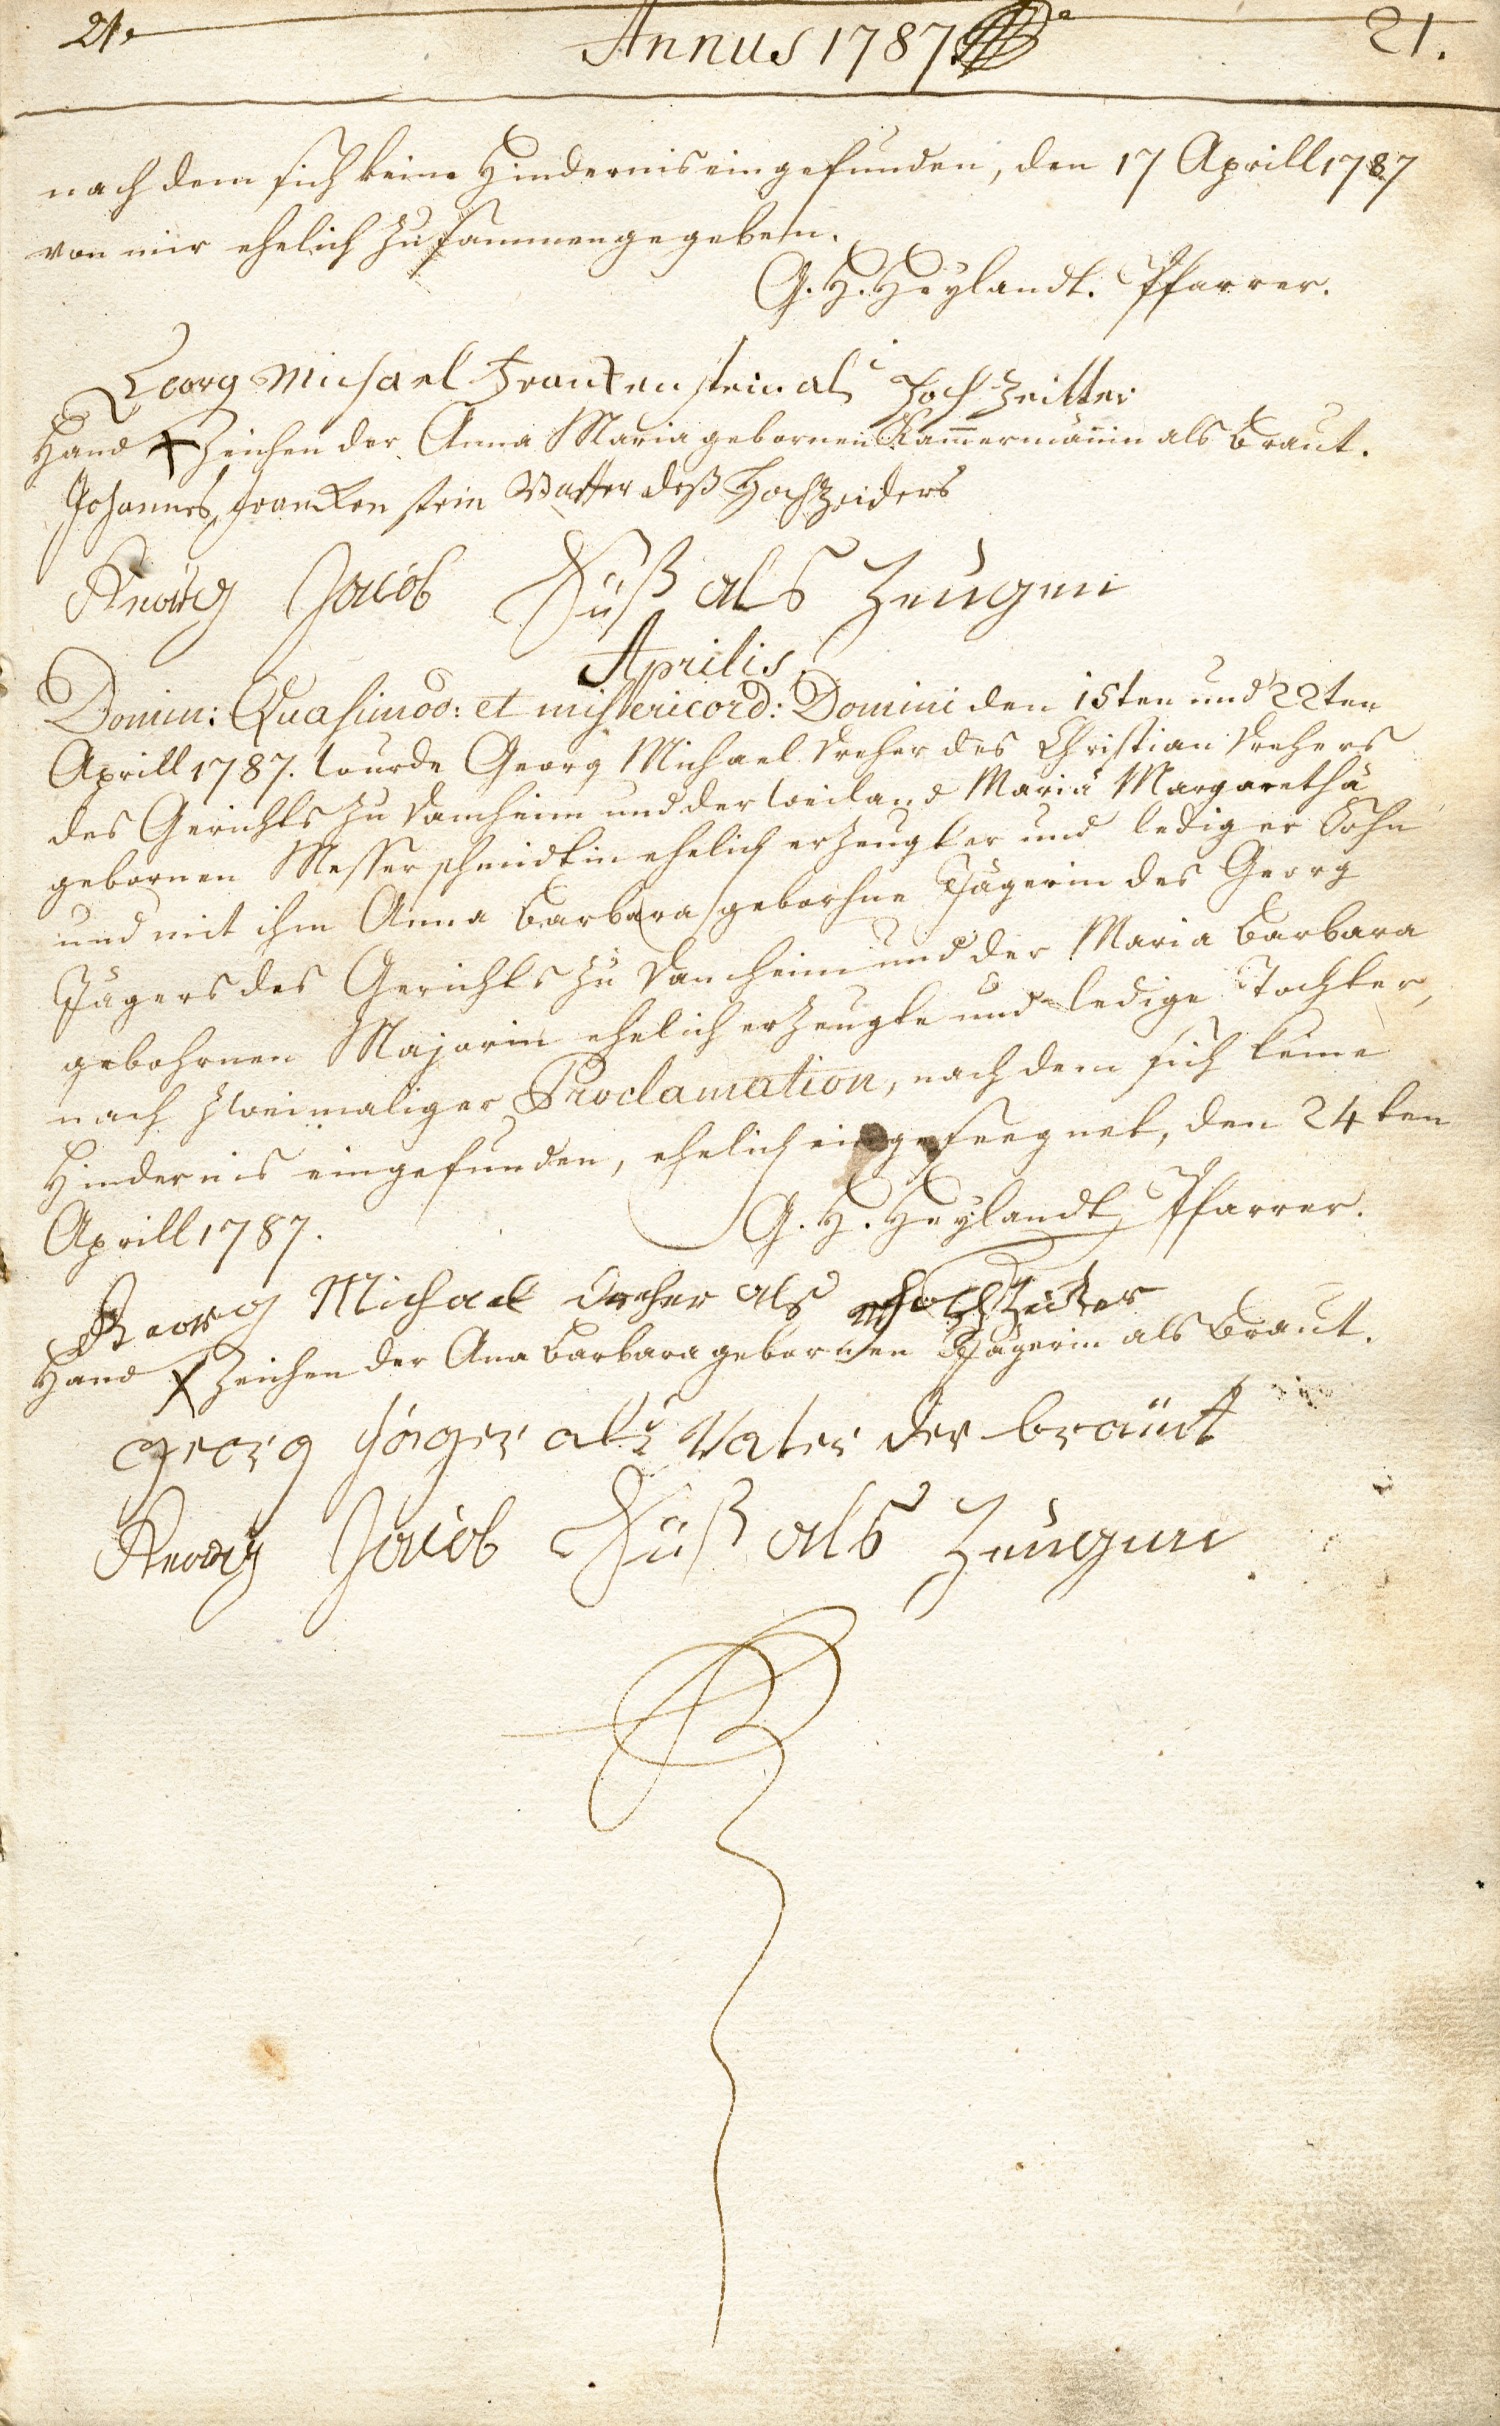 21. Annus 1787. 21.
nach dem sich keine Hindernis eingefunden, den 17 Aprill 1787
von mir ehelich zusammengegeben.
G. H. Heylandt. Pfarrer.
Georg Michael Franckenstein als Hochzeitter
Hand + Zeichen der Anna Maria gebornen Kammermännin als Braut.
Johannes Francken stein Vatter deß Hochzeiders
Jacob Süß als Zeugen
Aprilis
Domin: Quasimod: et misericord: Domini den 15ten und 22ten
Aprill 1787. wurde Georg Michael Dreher des Christian Drehers
des Gerichts zu Damheim und der weiland Mariä Margarethä
gebornen Messerschmidtin ehelich erzeugter und lediger Sohn
und mit ihm Anna Barbara gebohrne Jägerin des Georg
Jägers des Gerichts zu Damheim und der Maria Barbara
gebohrnen Majorin ehelich erzeugte und ledige Tochter,
nach zweimaliger Proclamation, nach dem sich keine
Hindernis eingefunden, ehelich eingeseegnet, den 24ten
Aprill 1787.
G. H. Heylandt, Pfarrer.
Georg Michael Dreher als Hochzeiter
Hand + Zeichen der Ana Barbara gebornen Jägerin als Braut.
georg Jäger als Vater der braut
Jacob Süß als Zeugen